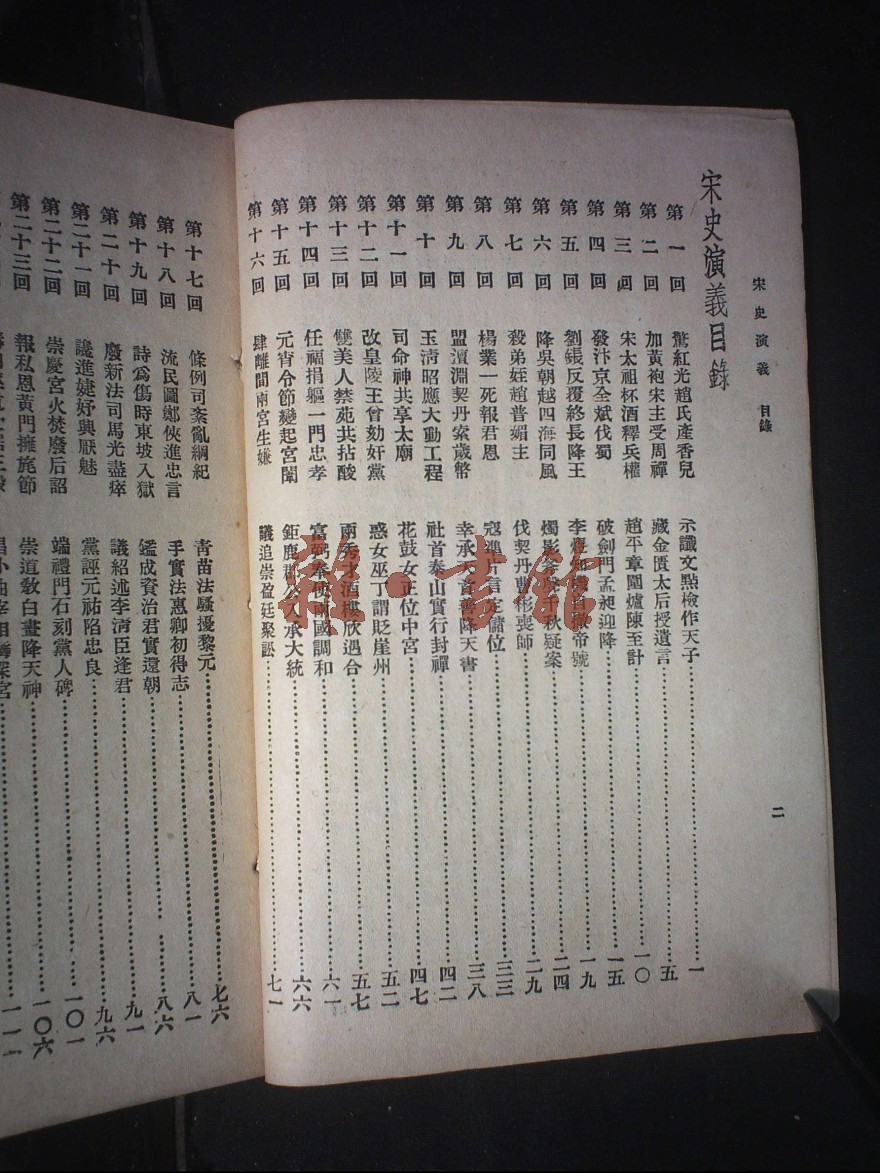 宋史演義 目錄
二
宋史演義目錄
第一回 驚紅光趙氏產香兒 示讖文點檢作天子 一
第二回 加黃袍宋主受周禪 藏金匱太后授遺言 五
第三回 宋太祖杯酒釋兵權 趙平章圍爐陳至計 一〇
第四回 發汴京全斌伐蜀 破劍門孟昶迎降 一五
第五回 劉鋹反覆終長降王 李煜 帝號 一九
第六回 降吳朝越四海同風 燭影 千秋疑案 二四
第七回 殺弟姪趙普媚主 伐契丹曹彬喪師 二九
第八回 楊業一死報君恩 寇準片言定儲位 三三
第九回 盟澶淵契丹索歲幣 幸承天 降天書 三八
第十回 玉清昭應大動工程 社首泰山實行封禪 四二
第十一回 司命神共享太廟 花鼓女正位中宮 四七
第十二回 改皇陵王曾劾奸黨 惑女巫丁謂貶崖州 五二
第十三回 雙美人禁苑共拈酸 兩秀才酒樓欣遇合 五七
第十四回 任福捐軀一門忠孝 富弼奉使兩國調和 六一
第十五回 元宵令節變起宮闈 鉅鹿郡公入承大統 六六
第十六回 肆離間兩宮生嫌 議追崇盈廷聚訟 七一
第十七回 條例司紊亂綱紀 靑苗法騷擾黎元 七六
第十八回 流民圖鄭俠進忠言 手實法惠卿初得志 八一
第十九回 詩爲傷時東坡入獄 鑑成資治君實還朝 八六
第二十回 廢新法司馬光盡瘁 議紹述李清臣逢君 九一
第二十一回 讒進婕妤興厭魅 黨誣元祐陷忠良 九六
第二十二回 崇慶宮火焚廢后詔 端禮門石刻黨人碑 一〇一
第二十三回 報私恩黃門擁旄節 崇道敎白晝降天神 一〇六
深宮 一一一